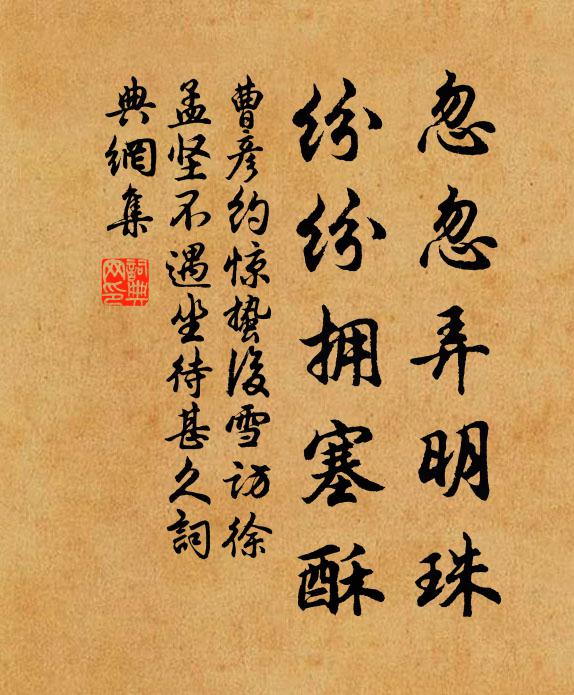 忽忽弄明珠
纷纷拥塞酥
曹彦约惊蛰後雪访徐
孟坚不遇坐待甚久詞
典網集
詞典
网印